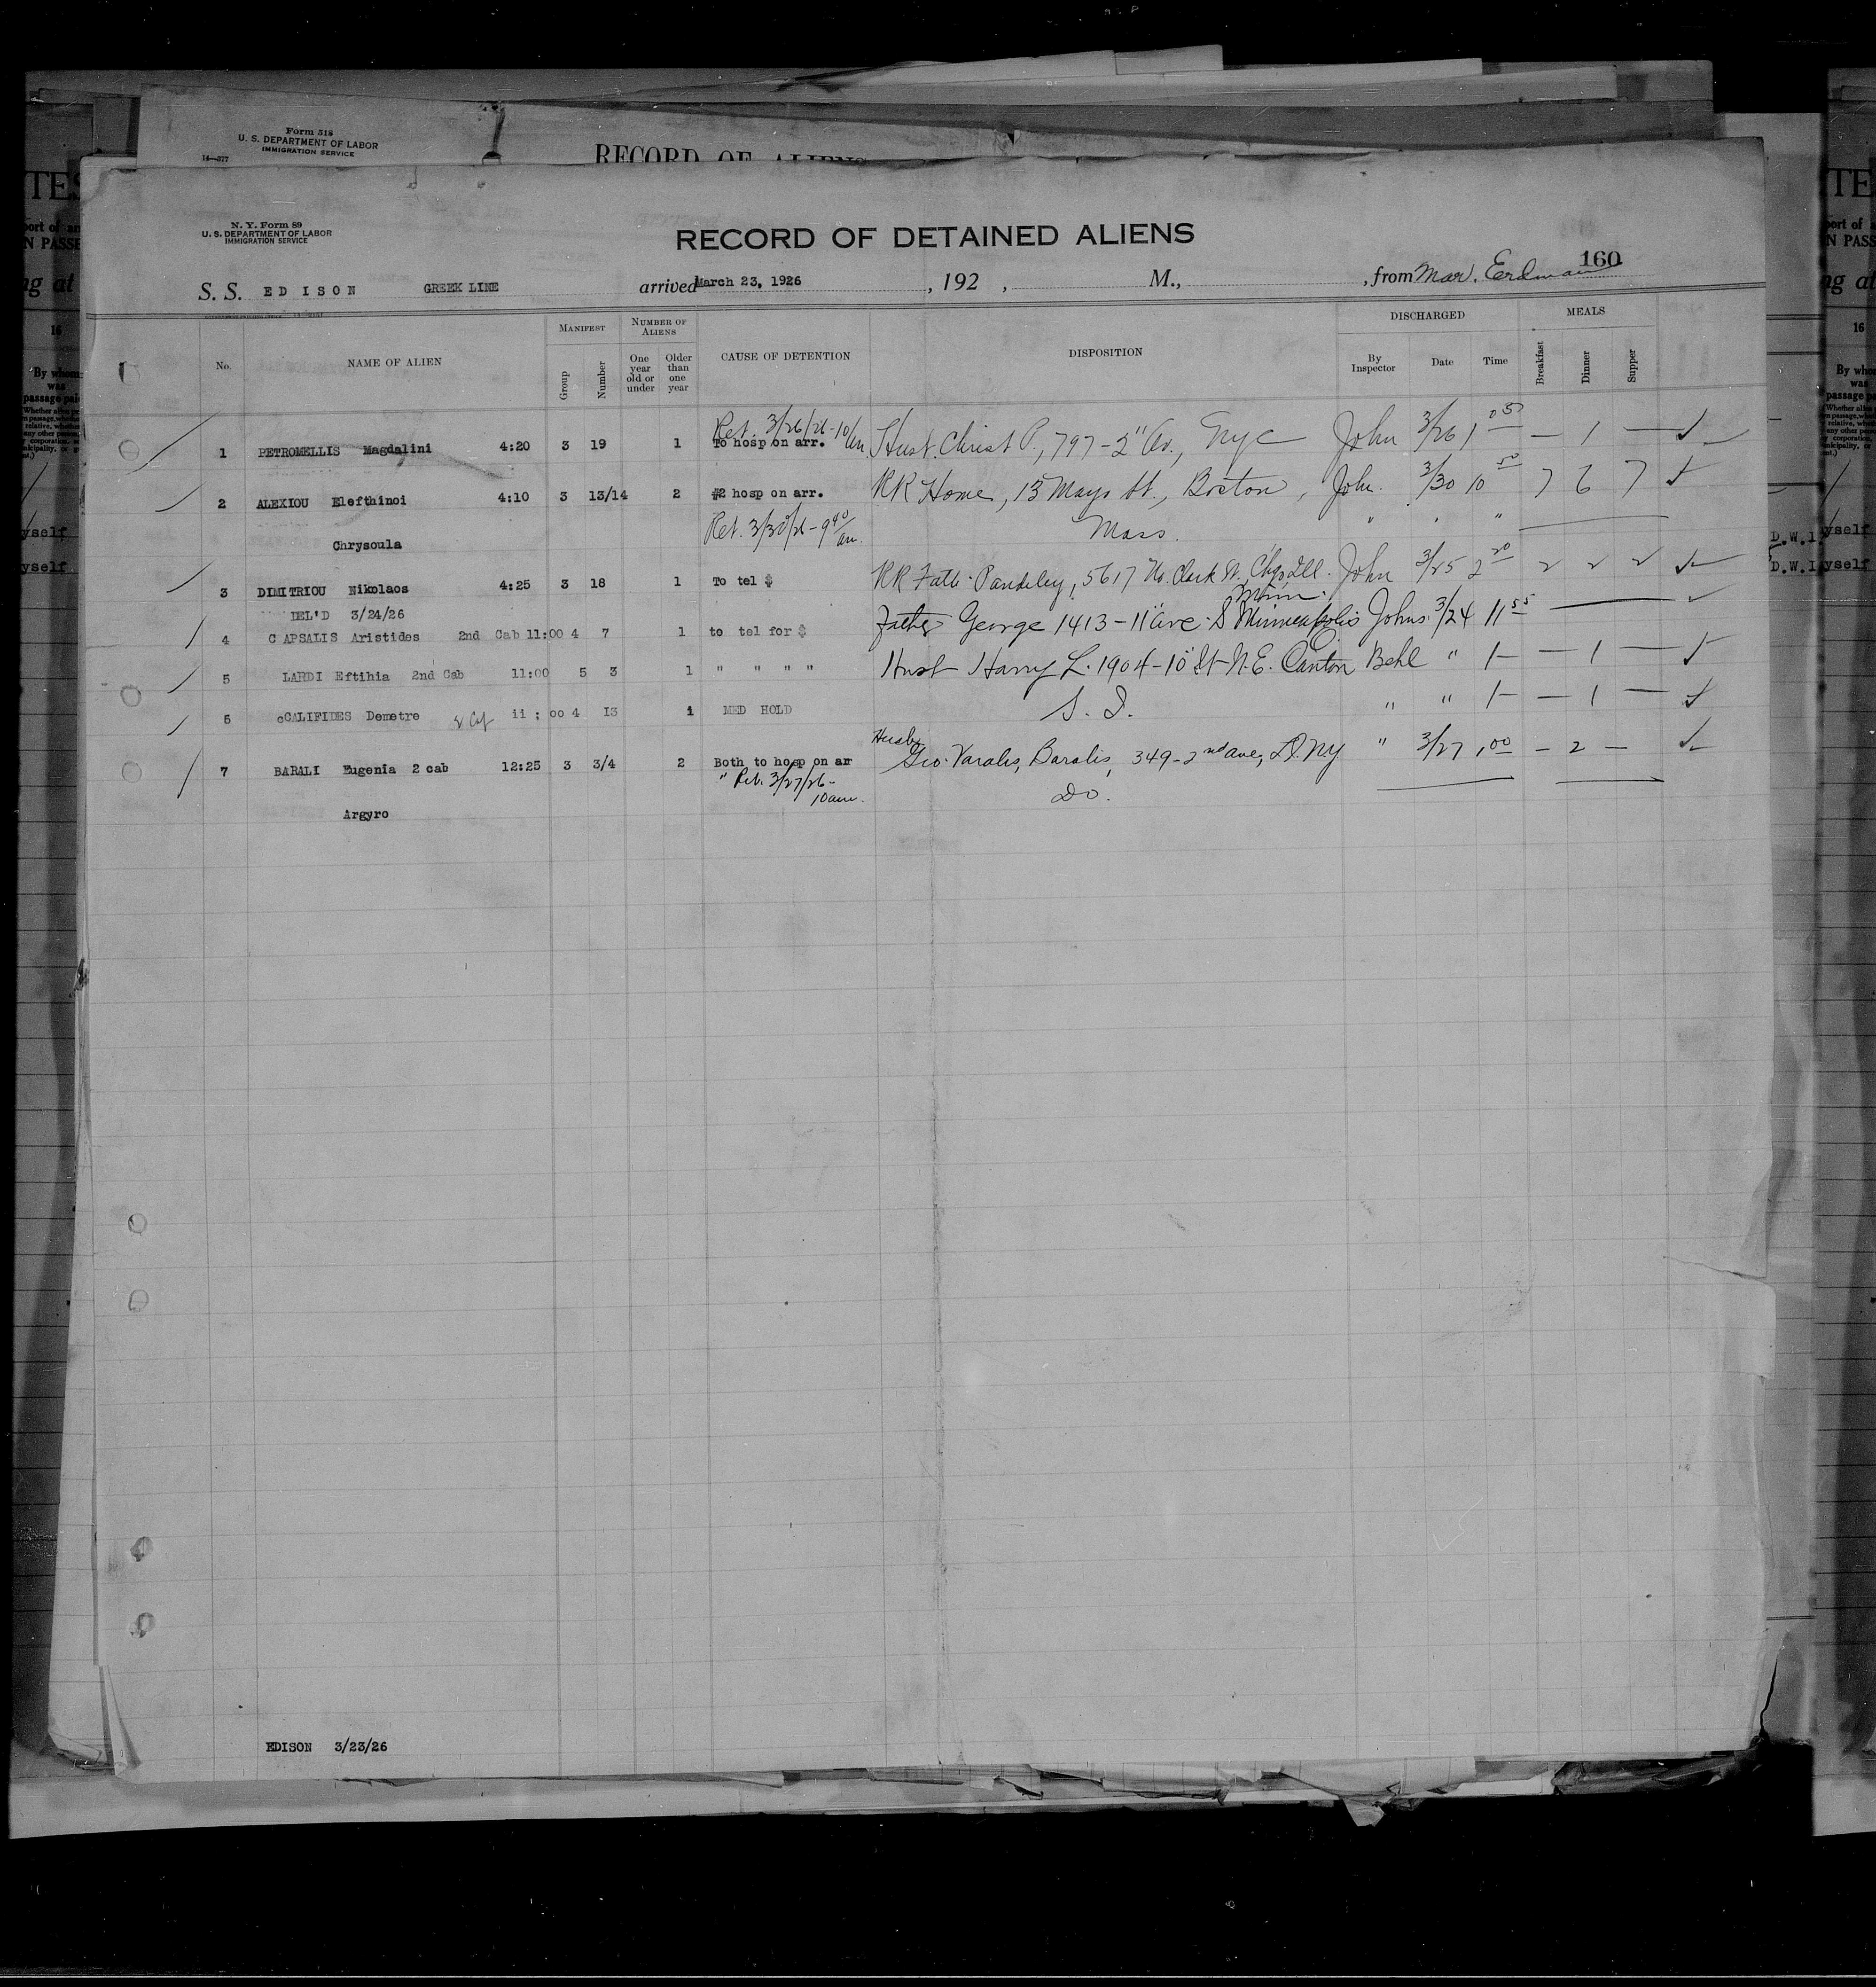 Form 518
U. S. DEPARTMENT OF LABOR
IMMIGRATION SERVICE
14—377
RECORD OF ALIENS
N. Y. Form 89
U. S. DEPARTMENT OF LABOR
IMMIGRATION SERVICE
RECORD OF DETAINED ALIENS
160
S. S. EDISON GREEK LINE arrived March 23, 1926, 192 , M., , from Mar. Erdman
No. NAME OF ALIEN MANIFEST Group Number NUMBER OF ALIENS One year old or under Older than one year CAUSE OF DETENTION DISPOSITION DISCHARGED By Inspector Date Time MEALS Breakfast Dinner Supper
Ret. 3/26/26-10/am
1 PETROMELLIS Magdalini 4:20 3 19 1 To hosp on arr. Husb. Christ P., 797-2" Av., NYC John 3/26 1 05 — 1 —
2 ALEXIOU Elefthinoi 4:10 3 13/14 2 #2 hosp on arr. RR Home, 15 Mayo St., Boston, John. 3/30 10 50 7 6 7
Ret. 3/30/26-9 40/am. Mass. " " "
Chrysoula
3 DIMITRIOU Nikolaos 4:25 3 18 1 To tel $ RR Fath. Pandeley, 5617 No. Clark St., Chgo Ill. John 3/25 2 20 2 2 2
DEL'D 3/24/26
Minn.
4 CAPSALIS Aristides 2nd Cab 11:00 4 7 1 to tel for $ Father George 1413-11" ave S Minneapolis Johns 3/24 11 55
5 LARDI Eftihia 2nd Cab 11:00 5 3 1 " " " " Husb Harry L. 1904-10" St-N.E. Canton O. Behl " 1— — 1 —
6 cCALIFIDES Demetre 2 Cf 11:00 4 13 1 MED HOLD S. I. " " 1— — 1 —
Husb
7 BARALI Eugenia 2 cab 12:25 3 3/4 2 Both to hosp on ar Geo. Varalis, Baralis, 349-2nd ave, N.Y. " 3/27 1 00 — 2 —
" Ret. 3/27/26-
10am. Do.
Argyro
EDISON 3/23/26
16
By whom was passage paid
yself
yself
D.W.I
D.W.I
yself
yself